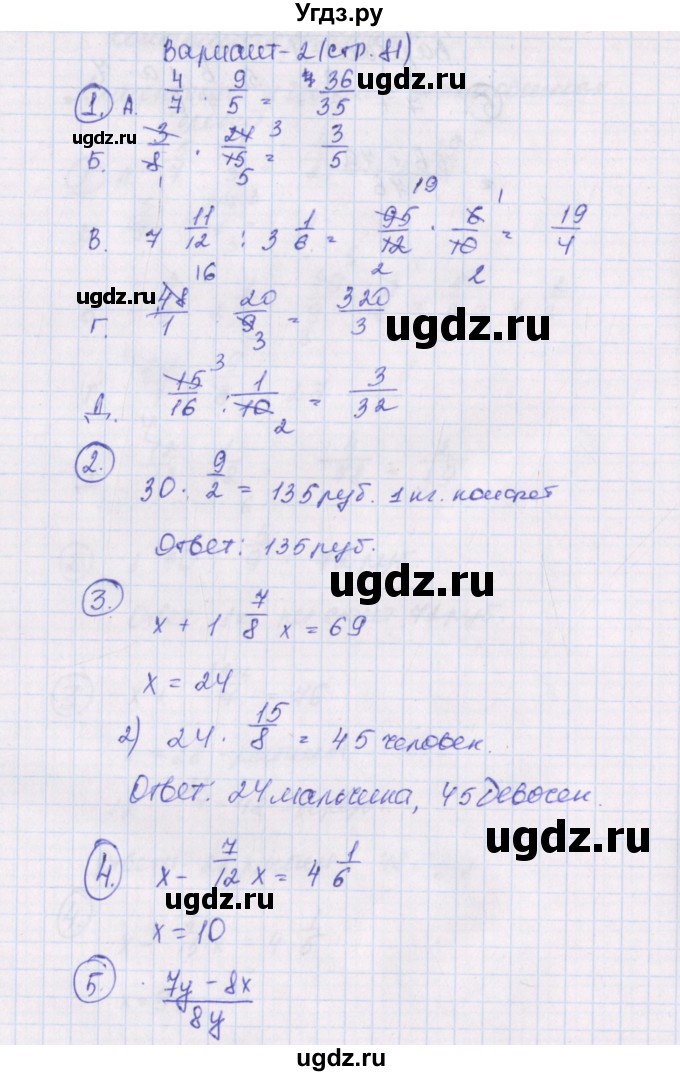 Угдз.ру
Вариант-2 (стр. 81)
1. А. 4/7 · 9/5 = 36/35
ugdz.ru
Б. 3/8 · 24/15 = 3/5
1 3 5
В. 7 11/12 : 3 1/6 = 95/12 · 6/10 = 19/4
19 1 2 2
ugdz.ru
Г. 48/1 · 20/9 = 320/3
16 3
ugdz.ru
Д. 15/16 : 1/10 = 3/32
3 2
2. 30 · 9/2 = 135 руб. 1 кг. конфет
Ответ: 135 руб.
ugdz.ru
3. x + 1 7/8 x = 69
x = 24
ugdz.ru
2) 24 · 15/8 = 45 человек.
Ответ: 24 мальчика, 45 девочек.
ugdz.ru
4. x - 7/12 x = 4 1/6
ugdz.ru
x = 10
5. 7y - 8x / 8y
ugdz.ru
ugdz.ru